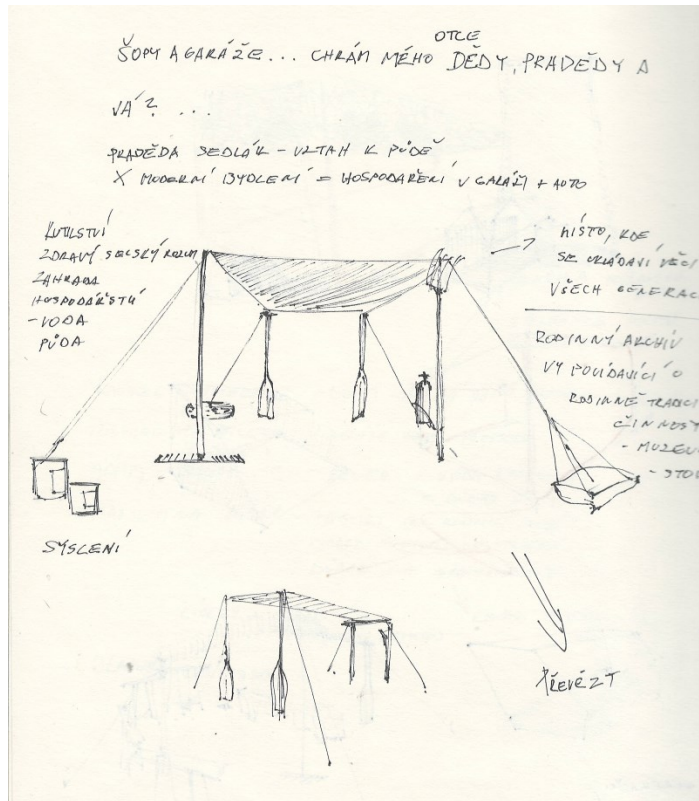 OTCE
ŠOPY A GARÁŽE... CHRÁM MÉHO DĚDY, PRADĚDY A
VÁ? ...
PRADĚDA SEDLÁK - VZTAH K PŮDĚ
X MODERNÍ BYDLENÍ = HOSPODAŘENÍ V GARÁŽI + AUTO
KUTILSTVÍ
ZDRAVÝ SELSKÝ ROZUM
ZAHRADA
HOSPODÁŘSTVÍ
- VODA
PŮDA
MÍSTO, KDE
SE UKLÁDAJÍ VĚCI
VŠECH GENERAC
RODINNÝ ARCHIV
VYPOVÍDAJÍCÍ O
RODINNÉ TRADICI
ČINNOST
- MUZEU
- STO
SYSLENÍ
PŘEVÉZT